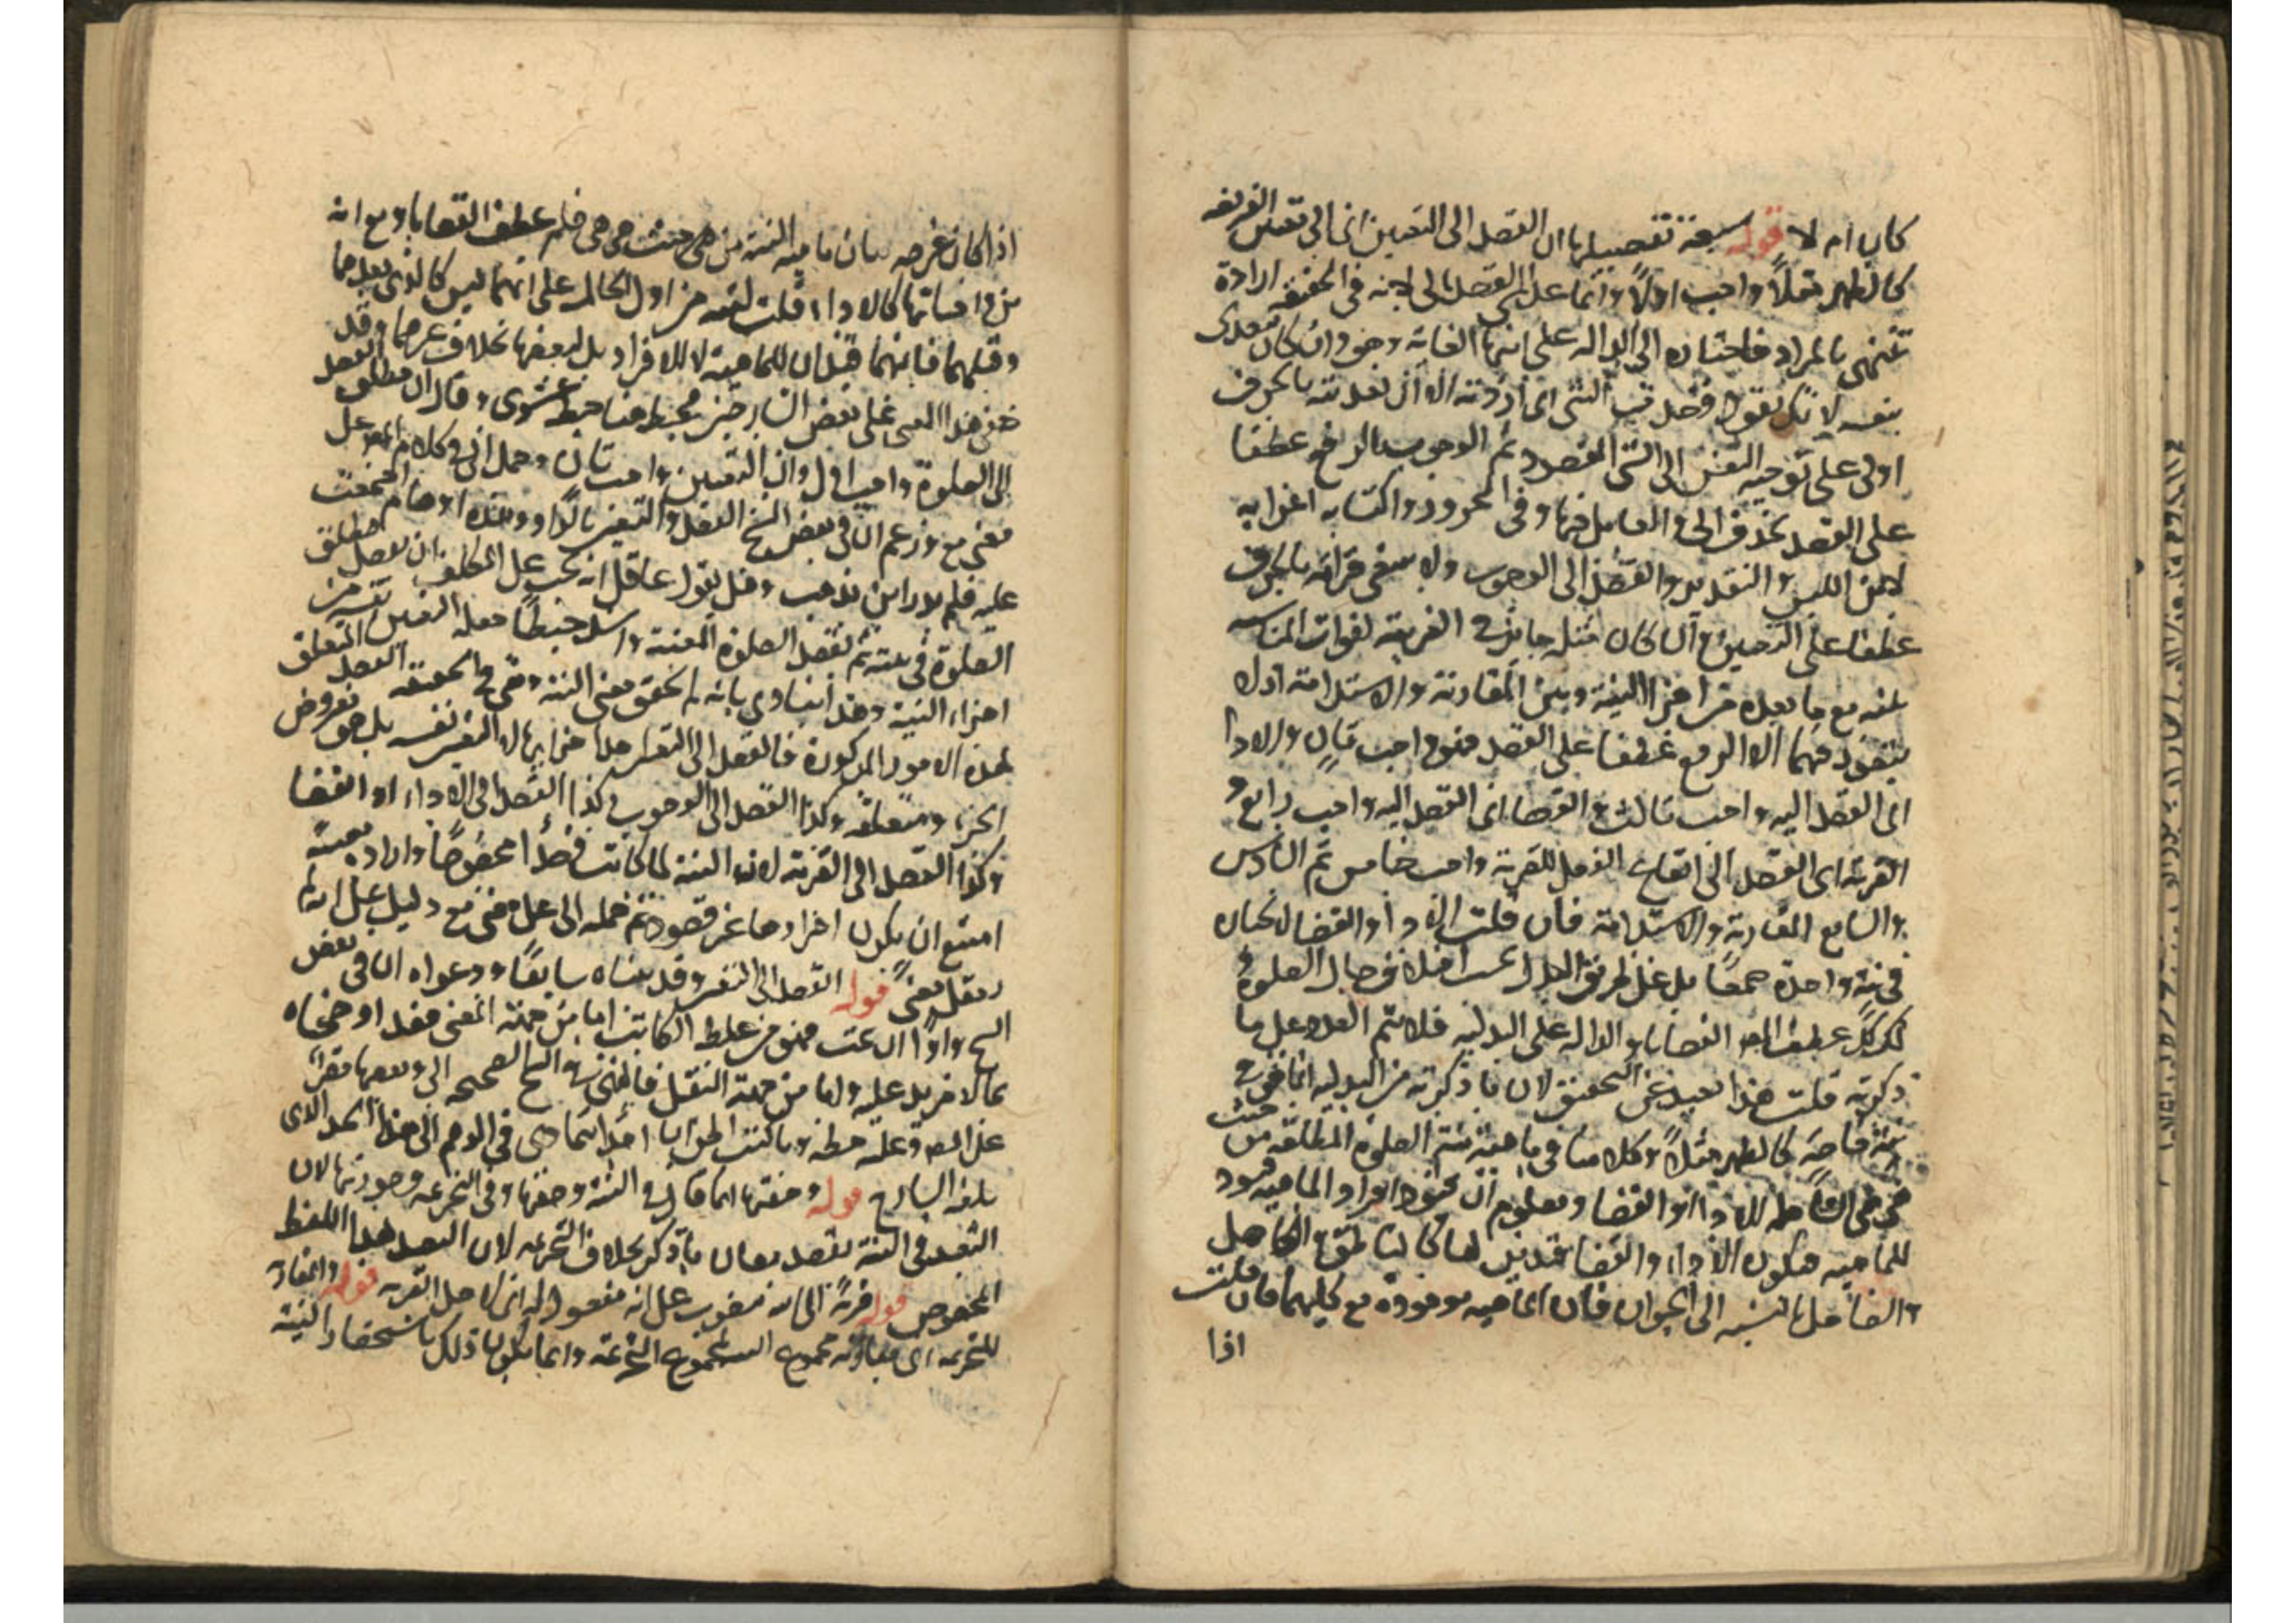 كان ام لا قوله سبعة تفصيلها ان القصد الى التعيين اى الى تعيين الفريضه
كالظهر مثلاً واجب اولاً وانما عدل الى القصد الى لانه فى الحقيقه ارادة
تنتهى بالمراد فاحتاره الى الداله على انتها الغاية وهو وان كان تعدى
بنفسه لانك تقول قصدت الشى اى اردته الا ان تعديته بالحرف
اولى على توجيه النفس الى الشى المقصود ثم الوجوب بالرفع عطفا
على القصد بحذف الى العامل فيها وفى المجرور واكتسابه اعرابه
لامن اللبس والتقدير والقصد الى الوجوب ولا ينبغى قراته بالجر
عطفا على التعيين وان كان مثله جائز فى العربية لفوات المناسبه
بينه مع ما بعده من اجزا النية وبين المقارنة والاستدامة اذ لا
يتصور فيهما الا الرفع عطفا على القصد فهو واجب ثان والادا
اى القصد اليه واجب ثالث والقضا اى القصد اليه واجب رابع و
القربة اى القصد الى ايقاع الفعل للقربة واجب خامس ثم السادس
والسابع المقارنة والاستدامة فان قلت الادا والقضا لا يجبان
فى نية واحدة جمعا بل على طريق البدل بحسب اختلاف حال الصلوة و
لذلك عطف المصـ القضا باو الداله على البدليه فلا يتم العدد على ما
ذكرته قلت هذا بعيد عن التحقيق لان ما ذكرته من البدليه انما هو فى
نية خاصة كالظهر مثلاً وكلامنا فى ماهية نية الصلوة المطلقه من حيث
هى هى الشاملة للادا والقضا ومعلوم ان تحقق افراد الماهيه قيود
للماهيه فيكون الادا والقضا قيدين لها كالناطق والكاهل
والصاهل بالنسبه الى الحيوان فان الماهيه موجودة مع كليهما فان قلت
اذا
اذا كان غرضه بيان ماهية النية من حيث هى هى فلم عطف القضا باو مع انه
من واجباتها كالادا قلت لينبه من اول الحال على انهما ليس كالذى بعدهما
وقبلهما فانهما قيدان للماهية لا للافراد بل لبعضها بخلاف غيرهما وقد
خفى هذا المعنى على بعض الشارحين فخبط هنا خبط عشوى وقال ان مطلق القصد
الى الصلوة واجب اول وان التعيين واجب ثان وحمل الى فى كلام المصـ على
معنى مع وزعم ان فى بعض النسخ القصد والتعيين بالواو وهذه اوهام اجتمعت
عليه فلم يدر اين يذهب وهل يقول عاقل انه يجب على المكلف ان يقصد مطلق
الصلوة فى نيته ثم يقصد الصلوة المعينة واشد خبطا جعله التعيين نفسه من
اجزاء النية وهذا ينادى بانه لم يحقق معنى النية وهى فى الحقيقه القصد المتعلق
لهذه الامور المذكورة فالقصد الى التعيين هذا جزايها لا التعيين نفسه بل هو معروض
الجزء ومتعلقه وكذا القصد الى الوجوب وكذا القصد الى الاداء او القضا
وكذا القصد الى القربة لان النية لما كانت قصدا مخصوصا وارادة معينة
امتنع ان يكون اجزاؤها غير قصود ثم حمله الى على معنى مع دليل على انه لم
يعقل معنى قوله القصد الى التعيين وقد بيناه سابقا ودعواه ان فى بعض
النسخ واوا ان تمت فهو من غلط الكاتب اما من جهة المعنى فقد اوضحناه
بما لا مزيد عليه واما من جهة النقل فالذى فى النسخ الصحيحه الى وبعضها مقروء
على المصـ وعليه خطه وما كنت اظن ان احدا يتمادى فى الوهم الى هذا الحد الذى
بلغه الشارح قوله وصفتها انما قال فى النية وصفتها وفى التحريمه وصورتها لان
القصد فى النية يقصد معان ما ذكر بخلاف التحريمه لان القصد هذا اللفظ
المخصوص قوله قربة الى الله منصوب على انه مفعول له اى لاجل القربه قوله والمقارنة
للتحريمه اى مقارنة مجموع النية لمجموع التحريمه وانما يكون ذلك باستحضار النية